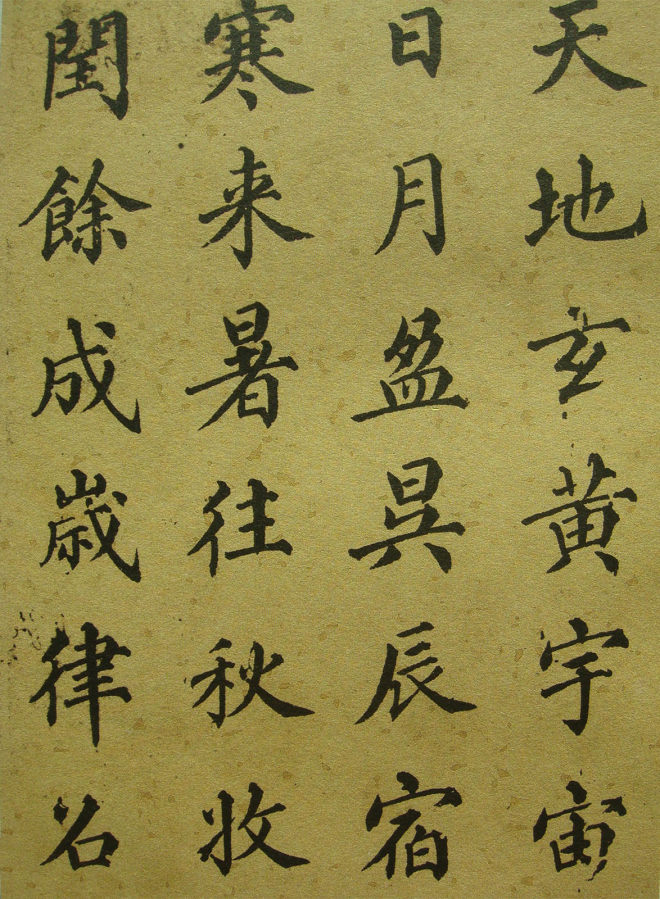 天地玄黄宇宙
日月盈昃辰宿
寒来暑往秋收
閏餘成歳律召